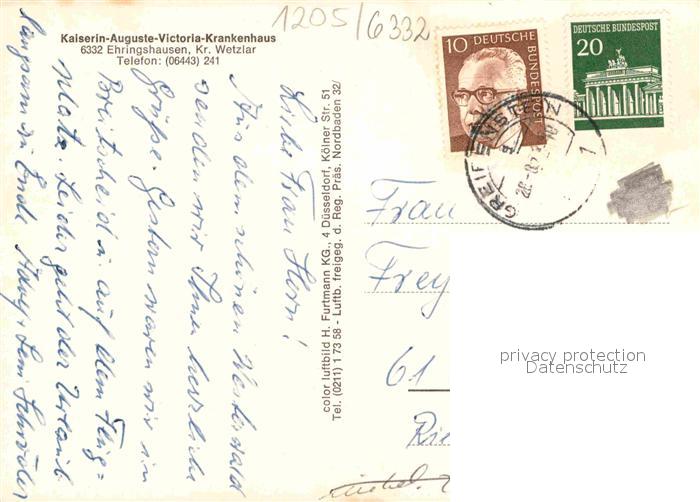 1205/6332
Kaiserin-Auguste-Victoria-Krankenhaus
6332 Ehringshausen, Kr. Wetzlar
Telefon: (06443) 241
10 DEUTSCHE BUNDESPOST
DEUTSCHE BUNDESPOST
20
GREIFENSTEIN
1
Liebe Frau Herr!
Aus dem schönen Westerwald
senden wir Ihnen herzliche
Grüße. Gestern waren wir in
Breitscheid u. auf dem Flug=
platz. Leider geht der Urlaub
langsam zu Ende
color luftbild H. Furtmann KG., 4 Düsseldorf, Kölner Str. 51
Tel. (0211) 1 73 58 - Luftb. freigeg. d. Reg. Präs. Nordbaden 32/
Frau
Frey
61
Rie
privacy protection
Datenschutz